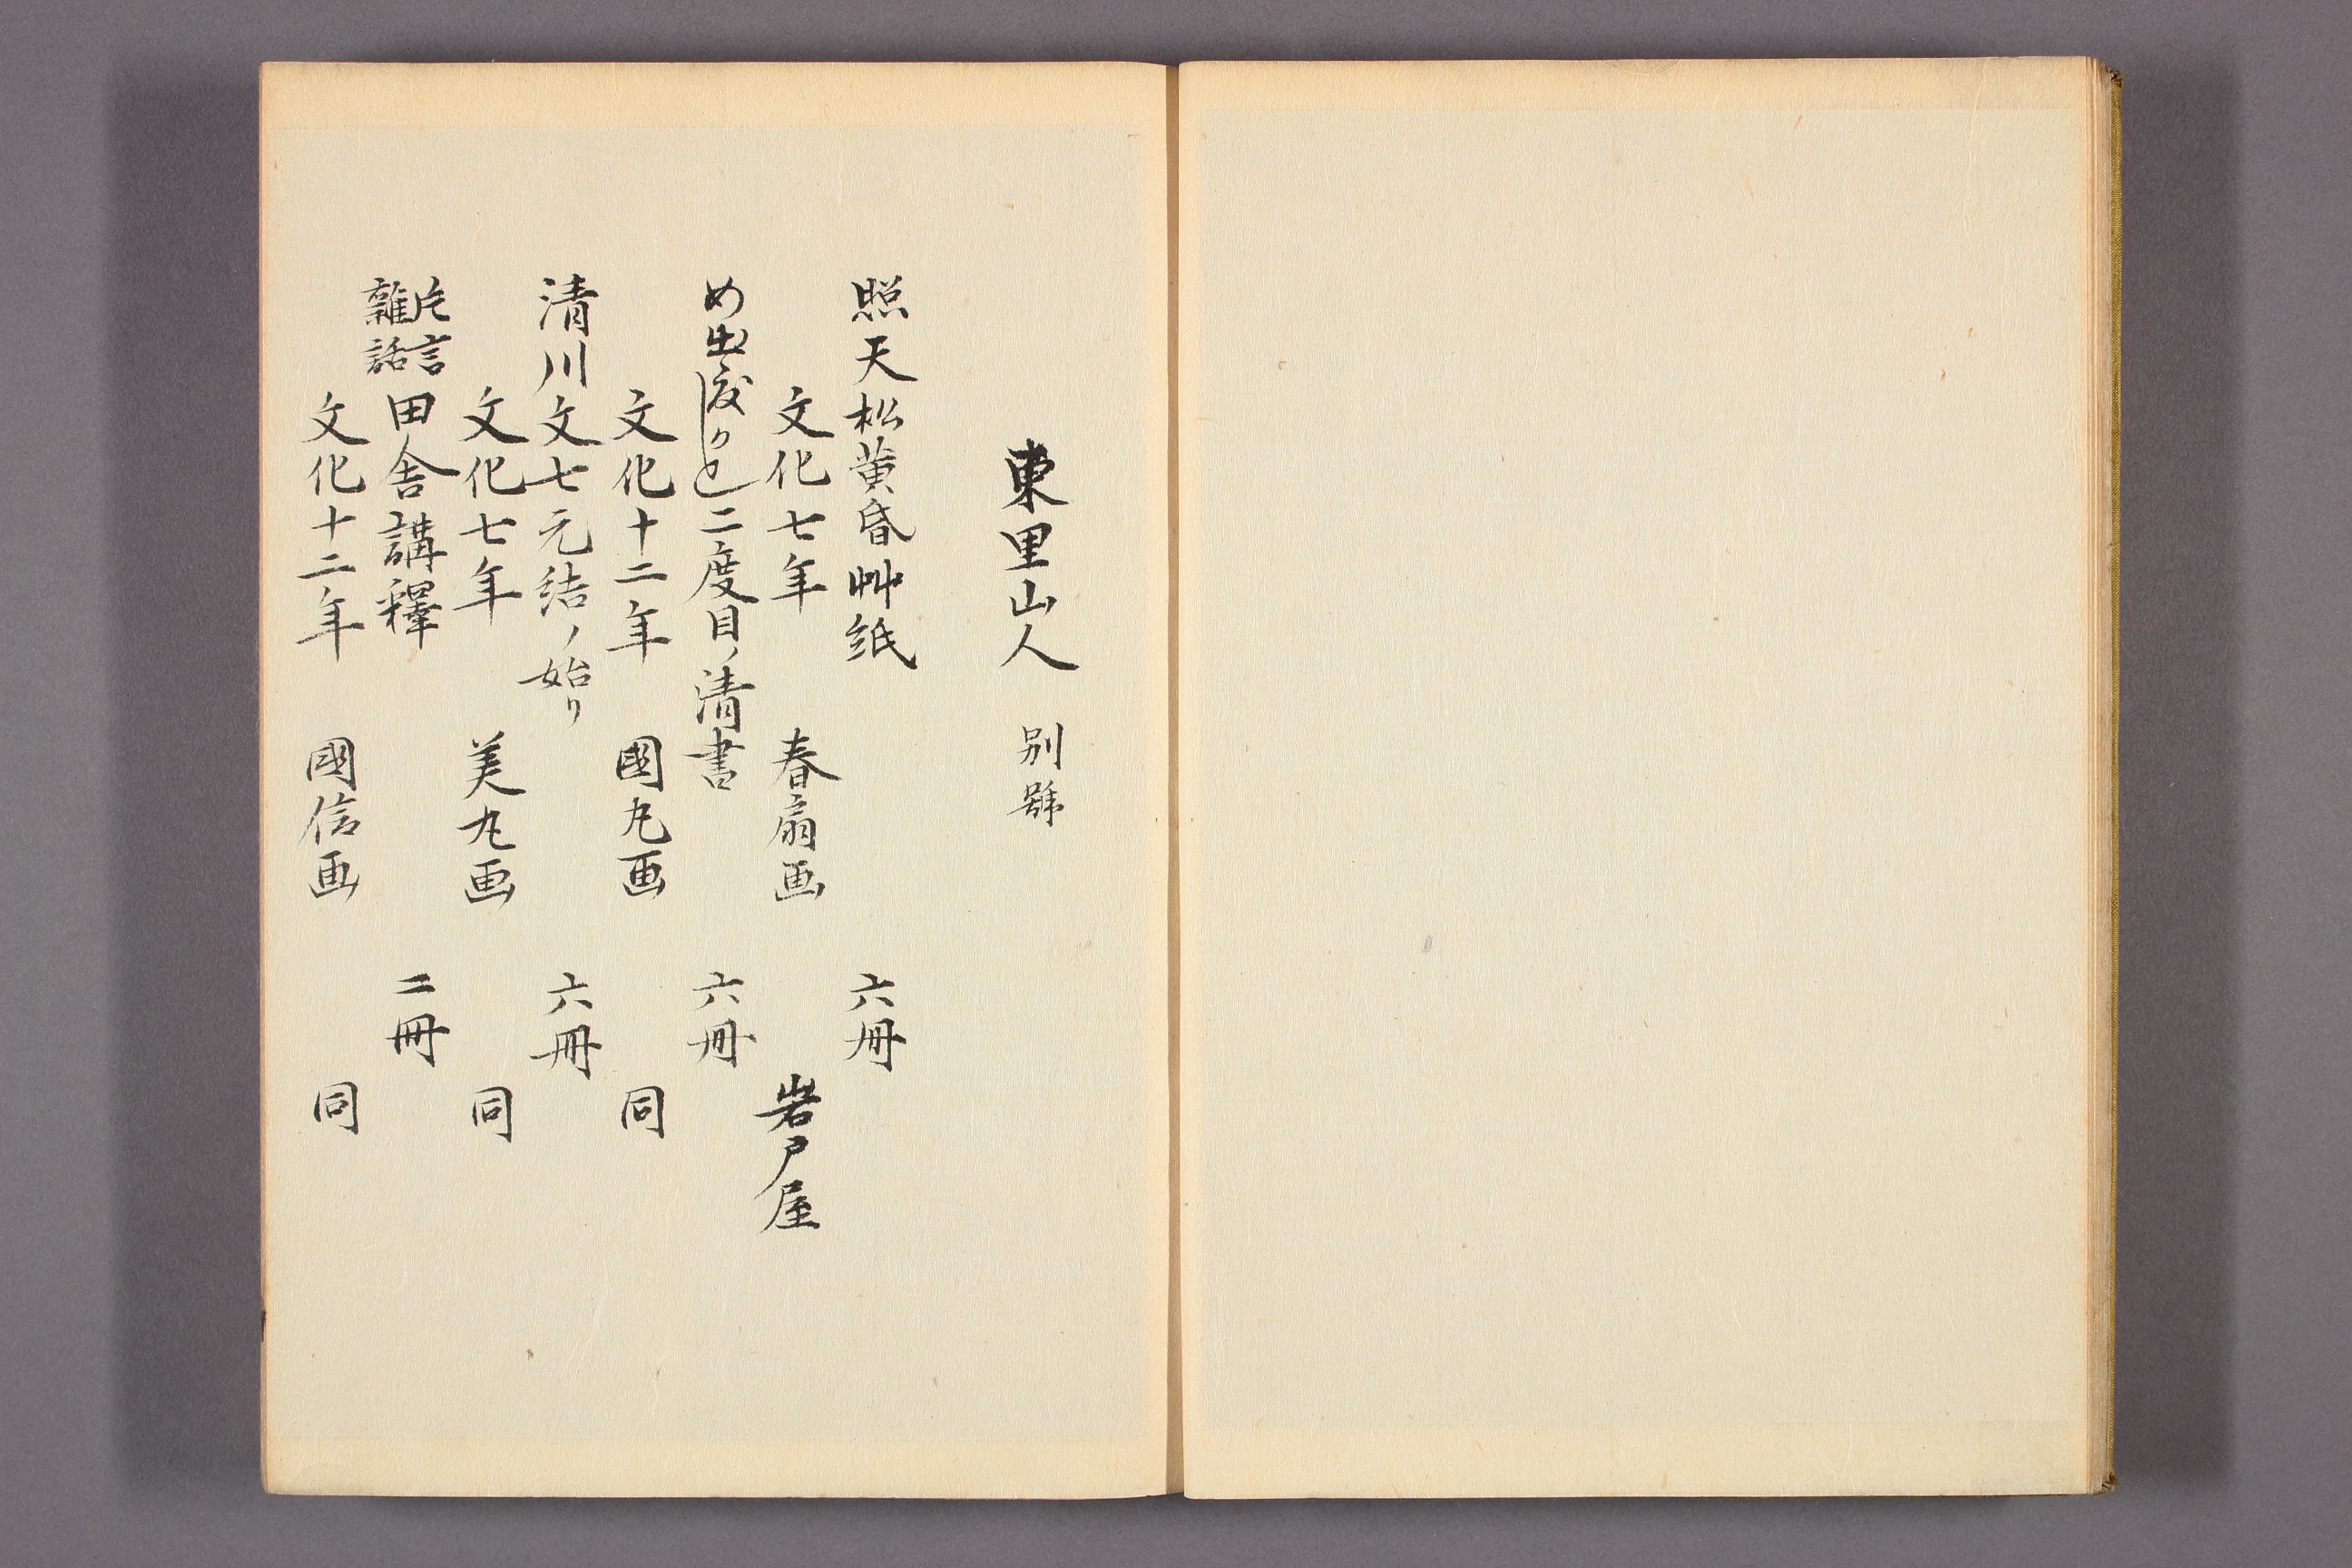 東里山人　別號
照天松黄昏艸紙　六冊
文化七年　春扇画　岩戸屋
め出度かしと二度目ノ清書　六冊
文化十二年　國丸画　同
清川文七元結ノ始り　六冊
文化七年　美丸画　同
片言雑話田舎講釋　二冊
文化十二年　國信画　同